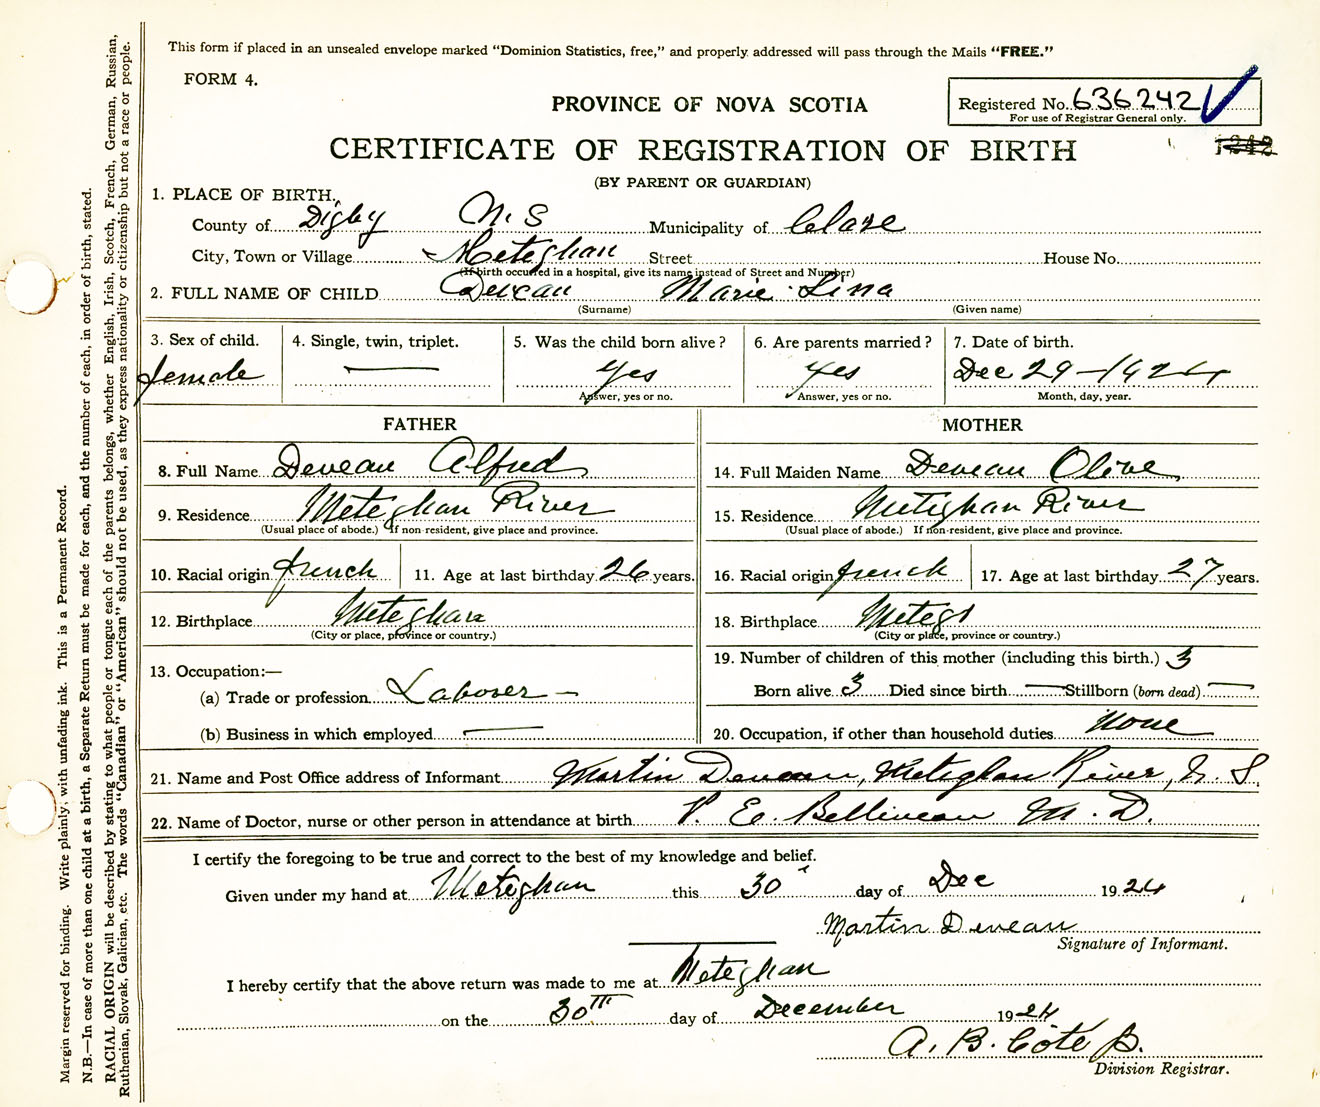 This form if placed in an unsealed envelope marked “Dominion Statistics, free,” and properly addressed will pass through the Mails “FREE.”
FORM 4.
Registered No. 636242
For use of Registrar General only.
PROVINCE OF NOVA SCOTIA
CERTIFICATE OF REGISTRATION OF BIRTH
(BY PARENT OR GUARDIAN)
1. PLACE OF BIRTH.
County of Digby N.S Municipality of Clare
City, Town or Village Meteghan Street House No.
(If birth occurred in a hospital, give its name instead of Street and Number)
2. FULL NAME OF CHILD Deveau Marie Lina
(Surname) (Given name)
3. Sex of child. 4. Single, twin, triplet. 5. Was the child born alive? 6. Are parents married? 7. Date of birth.
female — yes yes Dec 29 - 1924
Answer, yes or no. Answer, yes or no. Month, day, year.
FATHER MOTHER
8. Full Name Deveau Alfred 14. Full Maiden Name Deveau Olive
9. Residence Meteghan River 15. Residence Meteghan River
(Usual place of abode.) If non-resident, give place and province. (Usual place of abode.) If non-resident, give place and province.
10. Racial origin french 11. Age at last birthday 26 years. 16. Racial origin french 17. Age at last birthday 27 years.
12. Birthplace Meteghan 18. Birthplace Meteg
(City or place, province or country.) (City or place, province or country.)
13. Occupation:— 19. Number of children of this mother (including this birth.) 3
(a) Trade or profession Laborer — Born alive 3 Died since birth — Stillborn (born dead) —
(b) Business in which employed — 20. Occupation, if other than household duties None
21. Name and Post Office address of Informant Martin Deveau, Meteghan River, N.S.
22. Name of Doctor, nurse or other person in attendance at birth P. E. Belliveau M. D.
I certify the foregoing to be true and correct to the best of my knowledge and belief.
Given under my hand at Meteghan this 30 day of Dec 1924
Martin Deveau
Signature of Informant.
I hereby certify that the above return was made to me at Meteghan
on the 30TH day of December 1924
A. B. Côté
Division Registrar.
Margin reserved for binding. Write plainly, with unfading ink. This is a Permanent Record.
N.B.—In case of more than one child at a birth, a Separate Return must be made for each, and the number of each, in order of birth, stated.
RACIAL ORIGIN will be described by stating to what people or tongue each of the parents belongs, whether English, Irish, Scotch, French, German, Russian,
Ruthenian, Slovak, Galician, etc. The words “Canadian” or “American” should not be used, as they express nationality or citizenship but not a race or people.